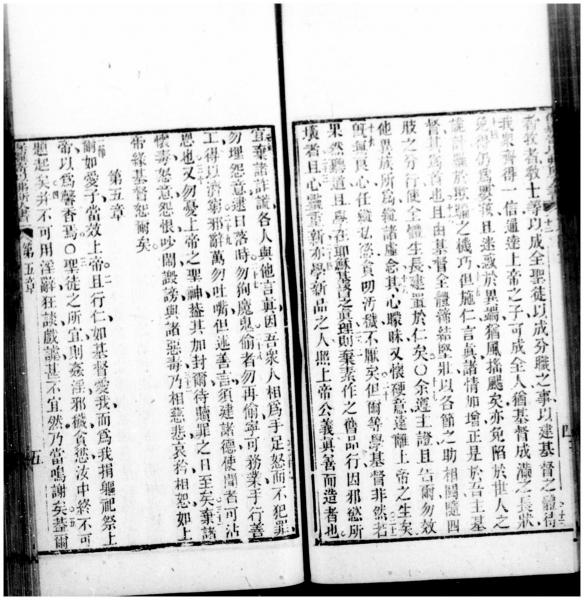 者牧者教士等以成全聖徒以成分職之事以建基督之體待
我衆齊得一信通達上帝之子可成全人猶基督成滿之長狀
免得仍為嬰孩且迷惑於異端猶風搖颺矣亦免陷於世人之
詭計於欺騙之機巧但施仁言真諸情加增正是於吾主基
督其為首也且由基督全體締結堅壯以各節之助相關隨四
肢之分行使全體生長建置於仁矣〇余遵主證且告爾勿效
他異族所為縱諸虛念其心朦昧又懷硬意遂離上帝之生矣
良心任縱私慾貪污穢不厭矣但爾等學基督非然若
果然聽道且學吾耶穌基督之真理則棄素作之舊品行因邪慾所
壞者且心靈重新亦學新品之人照上帝公義真善而造者也
四
宜棄諸詐謊各人與他言真因吾衆人相為手足怒而不犯罪
勿埋怨意迨日落時勿狥魔鬼偷者勿再偷寧可務業手行善
工得以濟窮邪辭萬勿吐嘴但述善言須建諸德使聞者可沾
恩也又勿憂上帝之聖神蓋其加封爾待贖罪之日至矣棄諸
懷毒怒意怨恨吵鬧毀謗與諸惡毒乃相慈悲哀矜相恕如上
帝緣基督恕爾矣
第五章
爾如愛子當效上帝且行仁如基督愛我而為我捐軀祀祭上
帝以為馨香焉〇聖徒之所宜則姦淫邪穢貪慾汝中終不可
題起矣并不可用淫辭狂談戲謔甚不宜然乃當鳴謝矣蓋爾
第五章
五